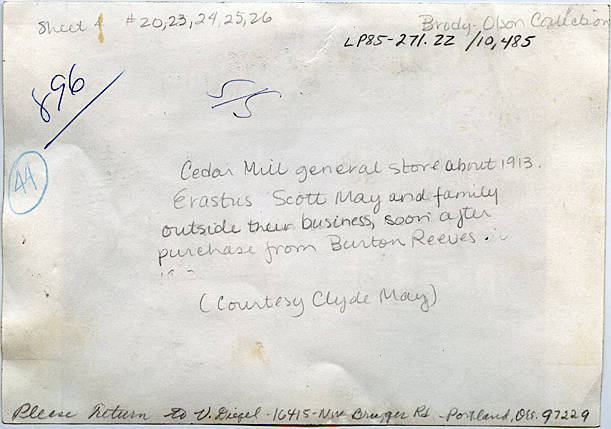 Sheet 4 #20,23,24,25,26
Brody-Olson Collection
LP85-271.22 /10,485
896
44
Cedar Mill general store about 1913.
Erastus Scott May and family
outside their business, soon after
purchase from Burton Reeves.
(Courtesy Clyde May)
Please Return to V. Diegel - 16415 - NW Brugger Rd. - Portland, Ore. 97229